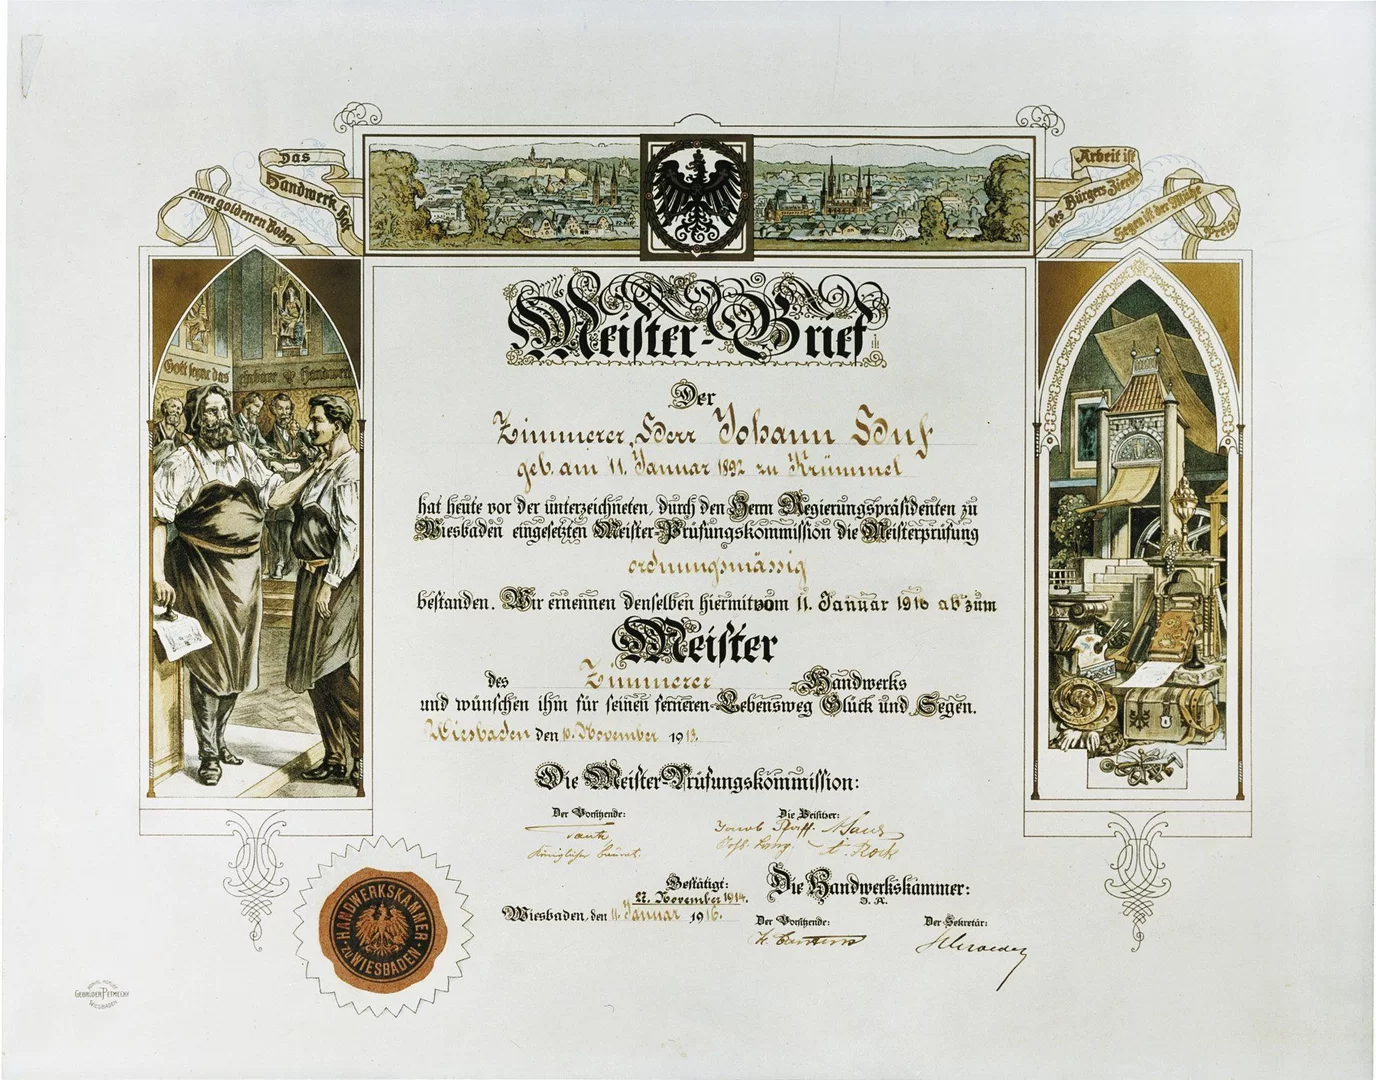 Das
Handwerk hat
einen goldenen Boden
Arbeit ist
des Bürgers Zierde
Segen ist der Mühe
Preis!
Gott segne das ehrbare Handwerk
Meister-Brief
Der
Zimmerer, Herr Johann Huf
geb. am 11. Januar 1892 zu Krümmel
hat heute vor der unterzeichneten, durch den Herrn Regierungspräsidenten zu
Wiesbaden eingesetzten Meister-Prüfungskommission die Meisterprüfung
ordnungsmässig
bestanden. Wir ernennen denselben hiermit vom 11. Januar 1916 ab zum
Meister
des Zimmerer Handwerks
und wünschen ihm für seinen ferneren Lebensweg Glück und Segen.
Wiesbaden den 10. November 1913.
Die Meister-Prüfungskommission:
Der Vorsitzende: Die Beisitzer:
Jacob Pfaff.
Königlicher Baurat. Joh. Lang. A. Rock
Bestätigt: Die Handwerkskammer:
27. November 1914. I. A.
Wiesbaden, den 11. Januar 1916. Der Vorsitzende: Der Sekretär:
Schroeder
HANDWERKSKAMMER
ZU WIESBADEN
GEBRÜDER PETMECKY
WIESBADEN